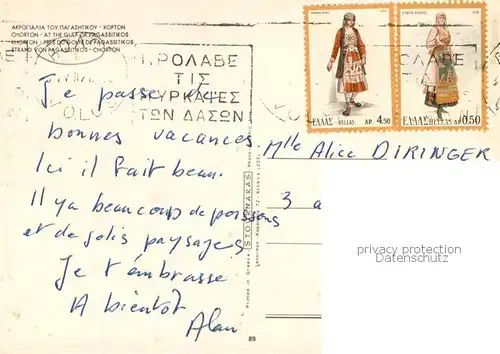 ΑΚΡΟΓΙΑΛΙΑ ΤΟΥ ΠΑΓΑΣΗΤΙΚΟΥ - ΧΟΡΤΟΝ
CHORTON - AT THE GULF OF PAGASSITIKOS
STRAND VON PAGASSITIKOS - CHORTON
ΠΡΟΛΑΒΕ
ΤΙΣ
ΠΥΡΚΑΓΙΕΣ
ΤΩΝ ΔΑΣΩΝ
ΕΛΛΑΣ HELLAS ΔΡ. 4.50
ΕΛΛΑΣ HELLAS ΔΡ. 0.50
Je passe de
bonnes vacances.
Ici il fait beau.
Il ya beaucoup de poissons
et de jolis paysages
Je t'embrasse
A bientôt
Alan
Mlle Alice DIRINGER
3 a
STOURNARAS
Printed in Greece
89
privacy protection
Datenschutz